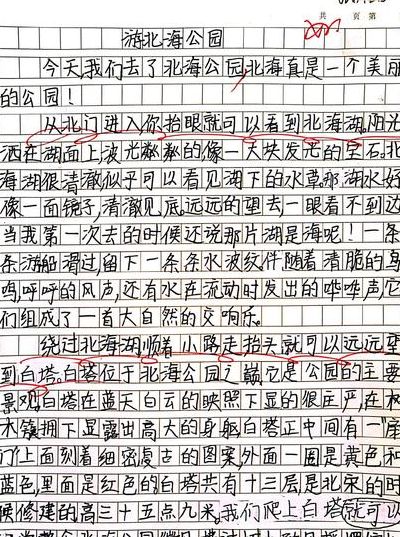 共 页 第
游北海公园
今天,我们去了北海公园,北海真是一个美丽
的公园!
从北门进入,你抬眼就可以看到北海湖,阳光
洒在湖面上波光粼粼的像一大块发光的宝石,北
海湖很清澈似乎可以看见湖下的水草,那湖水好
像一面镜子,清澈见底,远远的望去,一眼看不到边
当我第一次去的时候还说那片湖是海呢!一条
条游船滑过,留下一条条水波纹,伴随着清脆的鸟
鸣,呼呼的风声,还有水在流动时发出的哗哗声,它
们组成了一首大自然的交响乐。
绕过北海湖顺着小路走,抬头就可以远远望
到白塔。白塔位于北海公园之巅,它是公园的主要
景观,白塔在蓝天白云的映照下显的很庄严,在树
木簇拥下显露出高大的身躯,白塔正中间有一座
门,上面刻着细密复古的图案,外面一圈是黄色和
蓝色,里面是红色的,白塔共有十三层,是北宋的时
候修建的,高三十五点九米。我们爬上白塔就可以